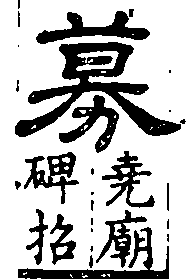 募
堯廟
碑招